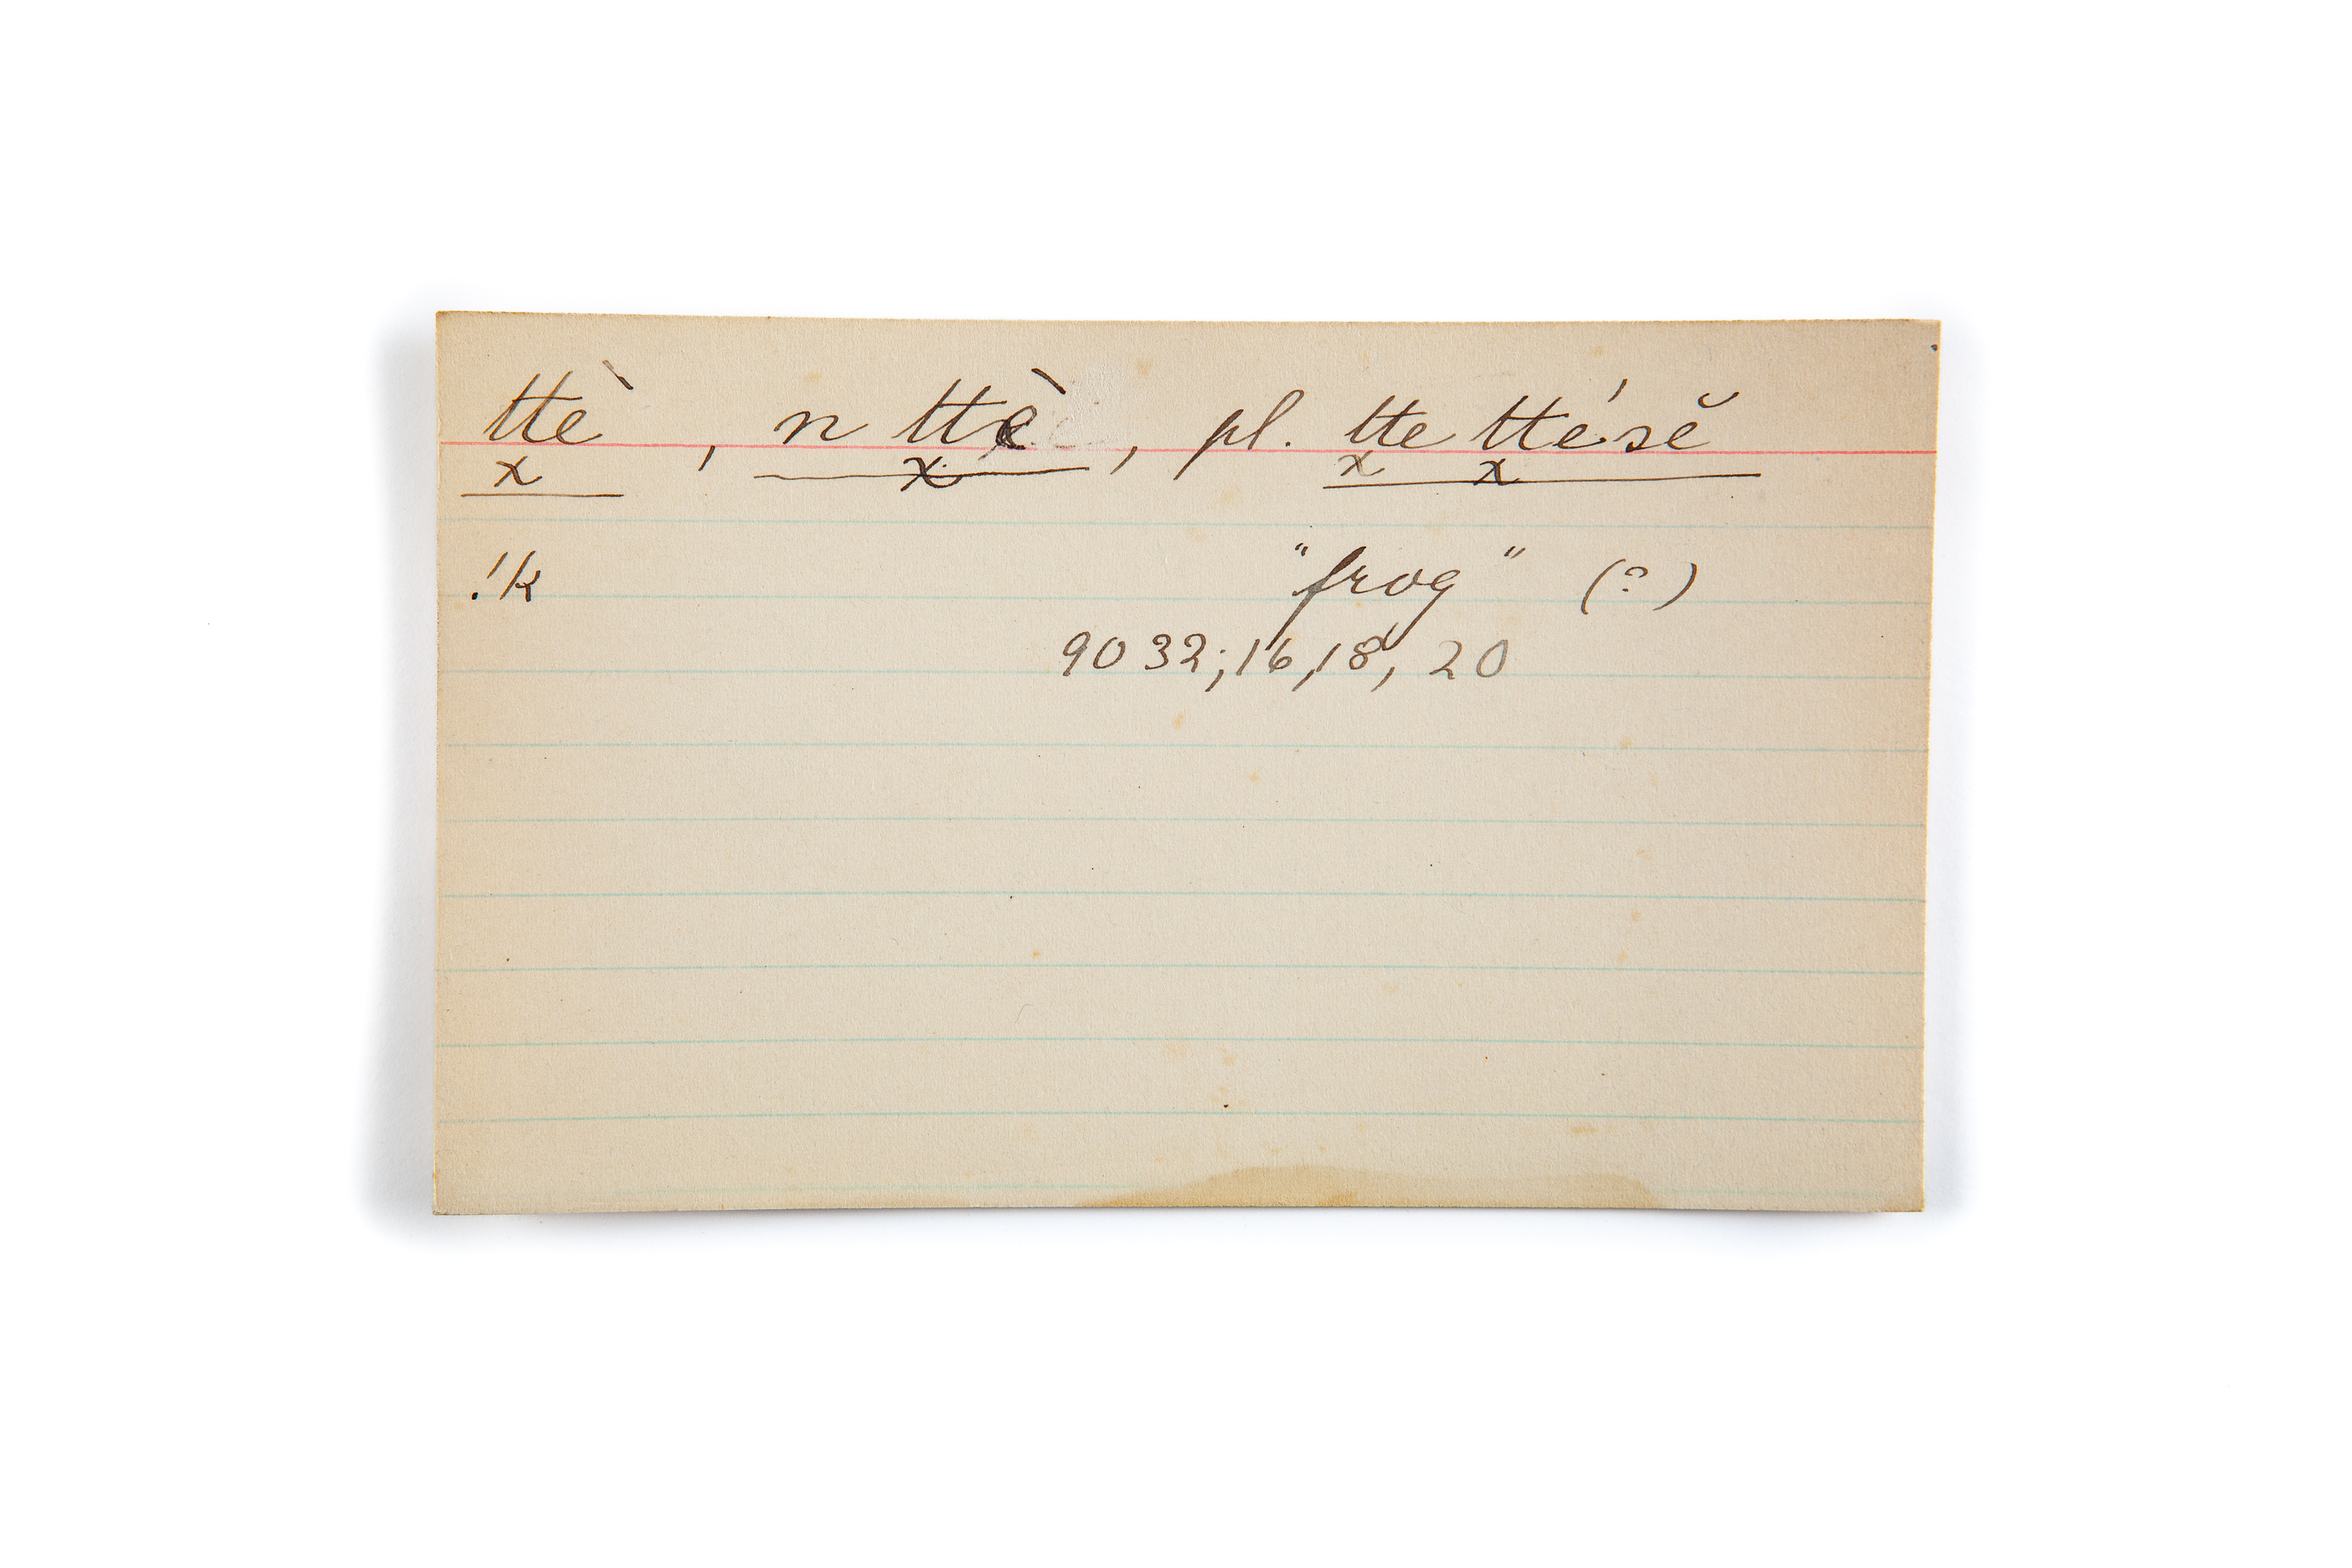 ttè, n ttè, pl. tte tté'sĕ
x x x x
!k "frog" (?)
9032; 16, 18, 20